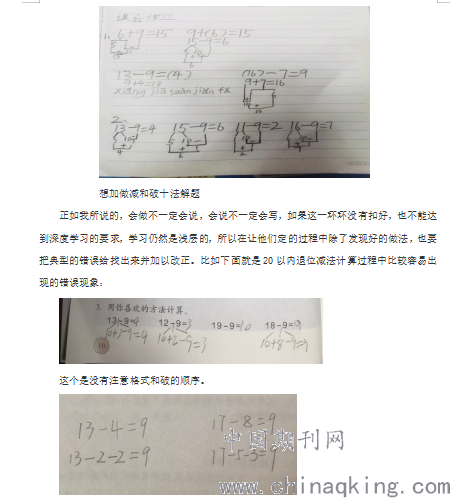 课立15三
1. 6+9=15 9+(6)=15
13-9=(4) (16)-7=9
9+4=13 9+7=16
xiang jia suan jian fa
2.
13-9=4 15-9=6 11-9=2 16-9=7
想加做减和破十法解题
正如我所说的，会做不一定会说，会说不一定会写，如果这一环环没有扣好，也不能达
到深度学习的要求，学习仍然是浅层的，所以在让他们定的过程中除了发现好的做法，也要
把典型的错误给找出来并加以改正。比如下面就是 20 以内退位减法计算过程中比较容易出
现的错误现象：
3. 用你喜欢的方法计算。
13-9=4 12-9=3 19-9=10 18-9=9
10+3-9=4 10+2-9=3 10+8-9=9
10
这个是没有注意格式和破的顺序。
13-4=9 17-8=9
13-2-2=9 17-5-3=9
中国期刊网
www.chinaqking.com